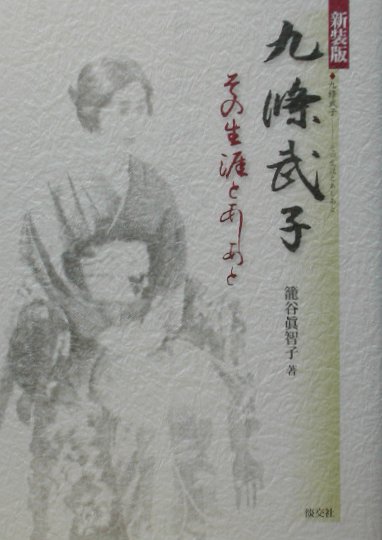 新装版
九條武子
その生涯とあしあと
◆九條武子――その生涯とあしあと
籠谷眞智子 著
淡交社